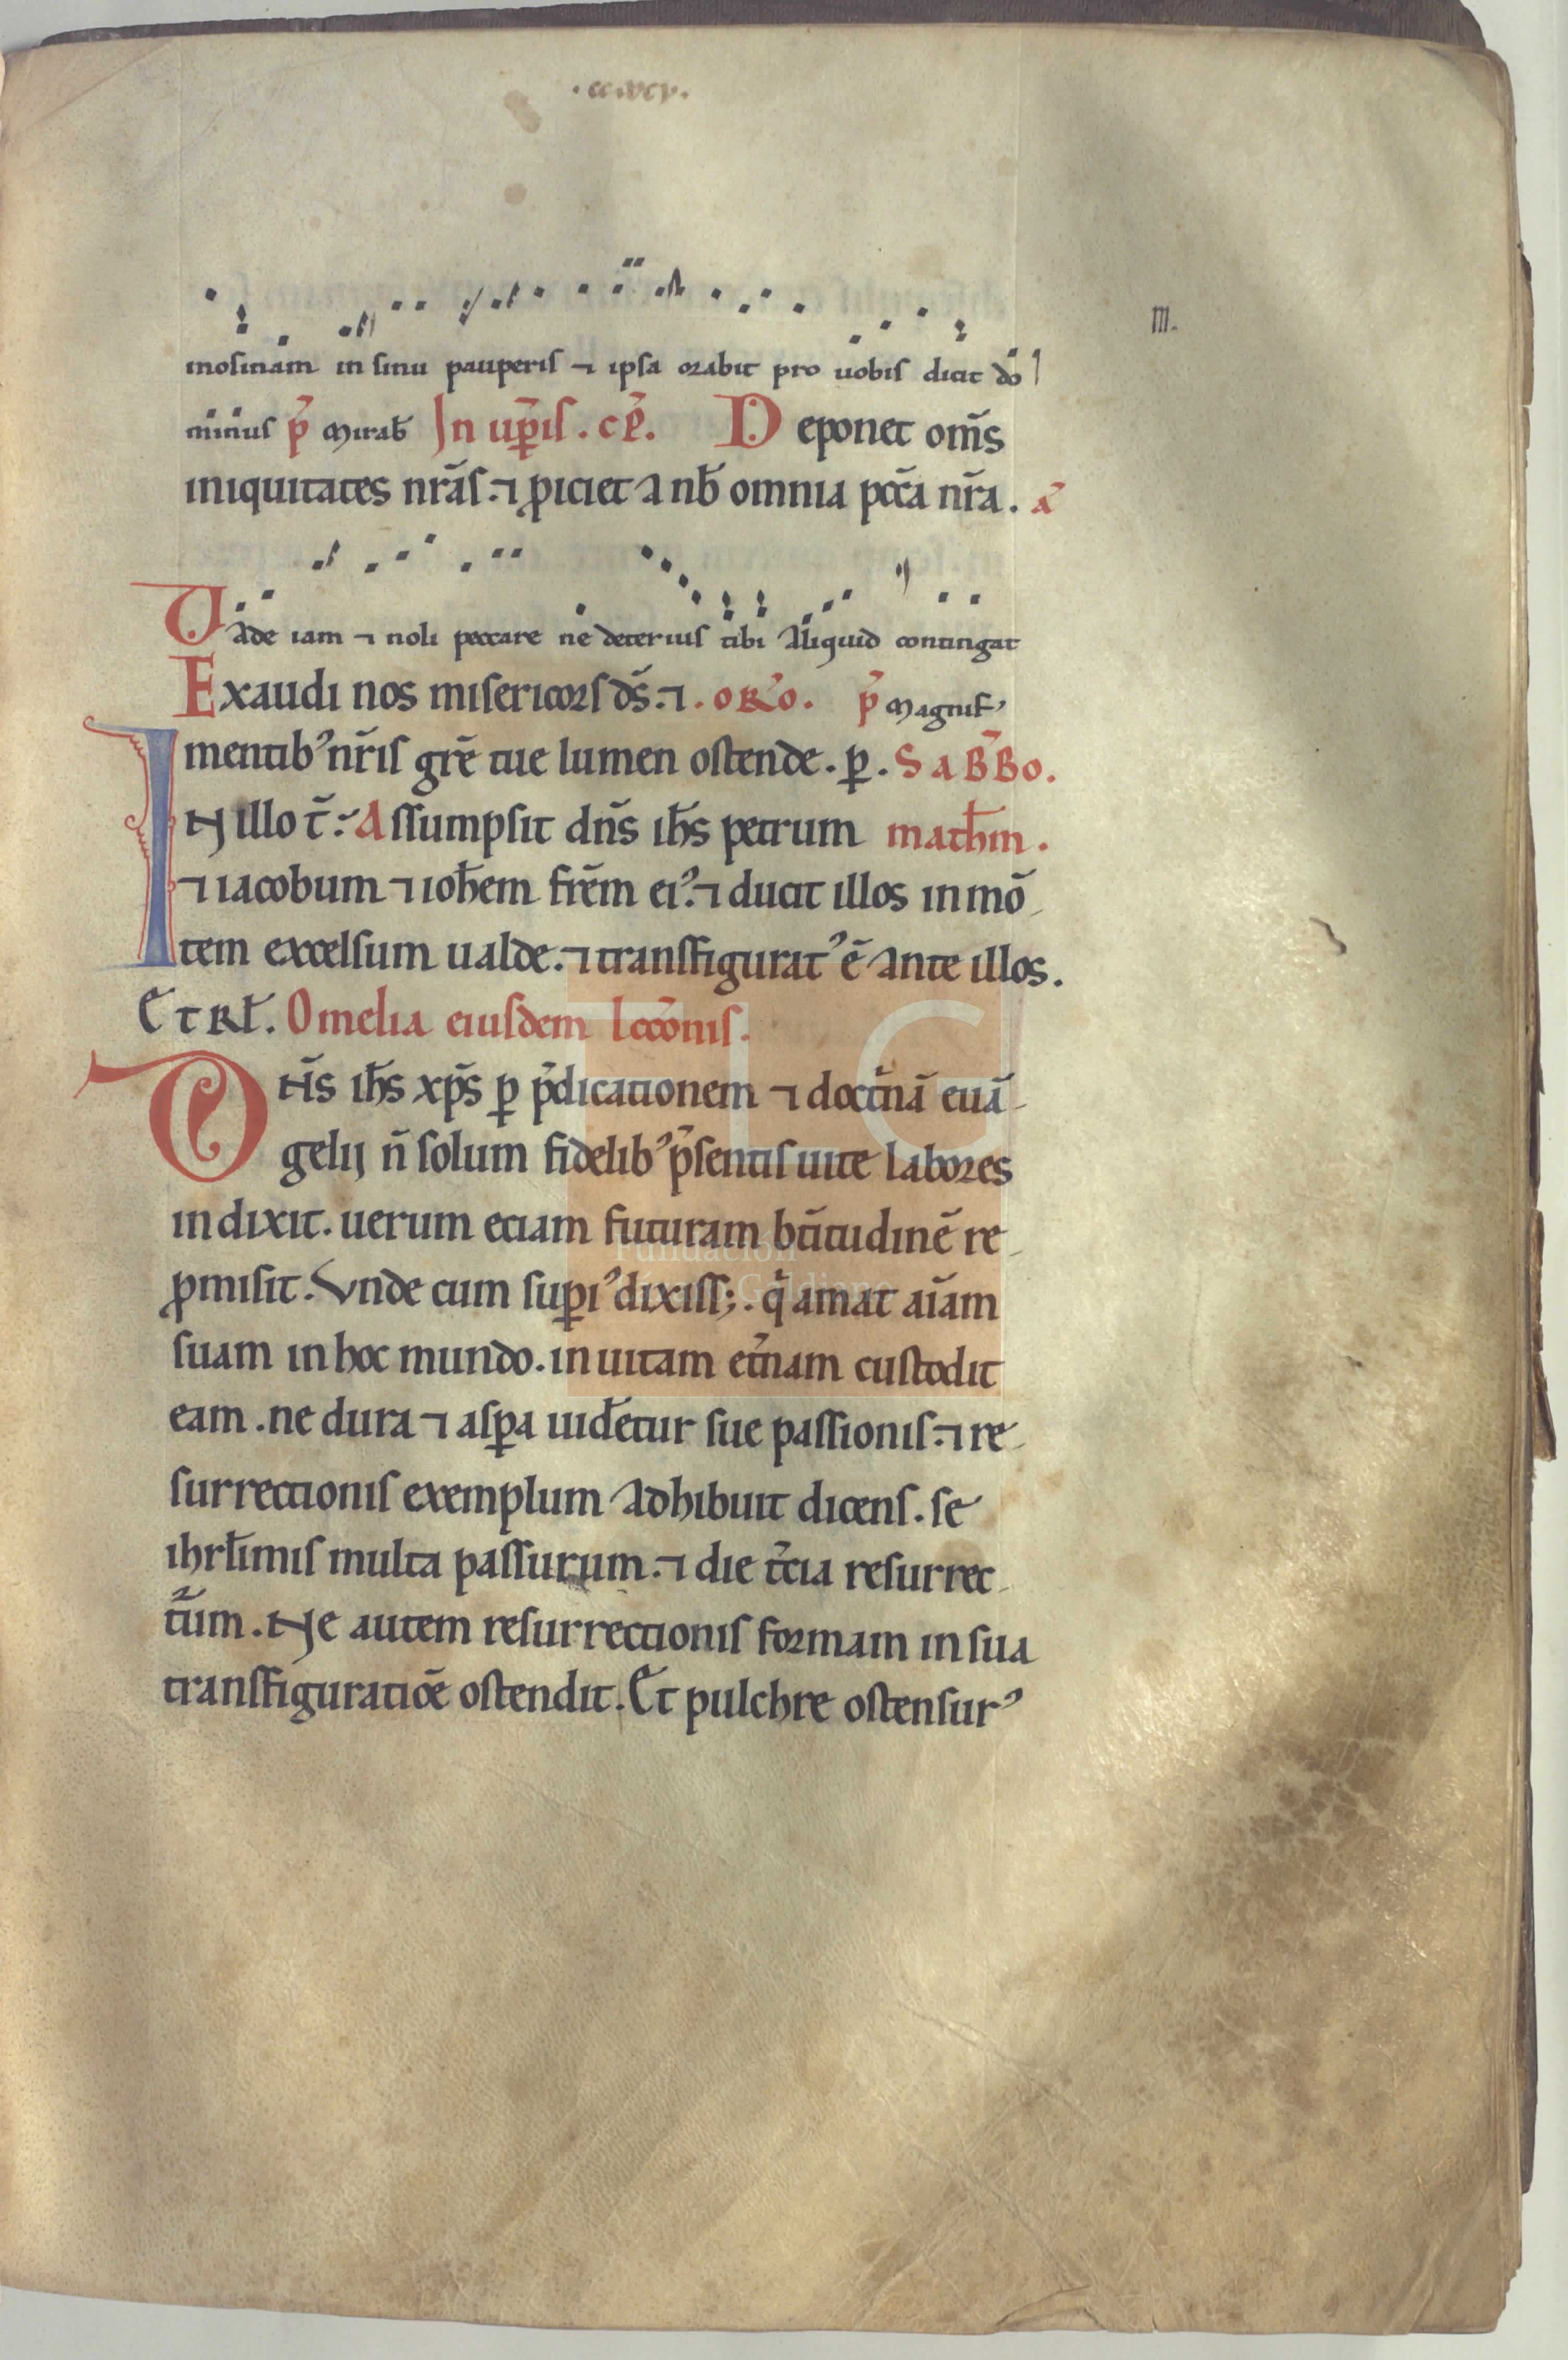 III.
mosinam in sinu pauperis ⁊ ipsa orabit pro uobis dicit do
minus p̄ Mirab̄ In up̄is . cp̄. Deponet om̄s
iniquitates nr̄as. ⁊ ꝓiciet a nb̄ omnia pcc̄a nr̄a . a᷃
Uade iam ⁊ noli peccare ne deterius tibi aliquid contingat
Exaudi nos misericors ds̄. ⁊ . oro. p̄ Magnif᾽
mentib᾽ nr̄is gr̄e tue lumen ostende. ꝑ. SaBBo.
IN illo t̄. Assumpsit dn̄s ih̄s petrum math̄m.
⁊ iacobum ⁊ ioh̄em fr̄em ei᾽. ⁊ ducit illos in mō
tem excelsum ualde. ⁊ transfigurat᾽ ē ante illos.
Et rl̄. Omelia eiusdem lcc̄onis.
DN̄s ih̄s xp̄s ꝑ p̄dicationem ⁊ doct̄nā euā
gelij n̄ solum fidelib᾽ p̄sentis uite labores
indixit. uerum eciam futuram bt̄itudinē re
ꝓmisit. Vnde cum suꝑi᾽ dixiss;. q̄ amat aīam
suam in hoc mundo. in uitam et̄nam custodit
eam . ne dura ⁊ asꝑa uid̄etur sue passionis. ⁊ re
surrectionis exemplum adhibuit dicens. se
ihrl̄imis multa passurum. ⁊ die t̄cia resurrec
tūm. Ne autem resurrectionis formam in sua
transfiguratiōe ostendit. Et pulchre ostensur᾽